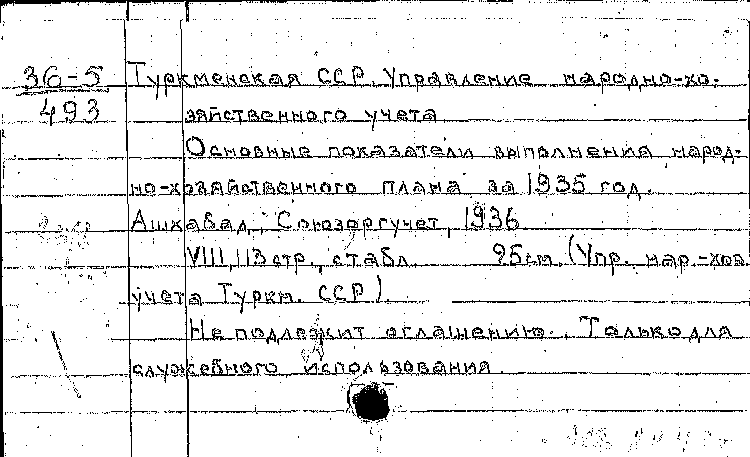 36-5
493
Туркменская ССР. Управление народно-хо-
зяйственного учета
Основные показатели выполнения народ-
но-хозяйственного плана за 1935 год.
Ашхабад, Союзоргучет, 1936
VIII, 113 стр., с табл. 25 см. (Упр. нар.-хоз.
учета Туркм. ССР).
Не подлежит оглашению. Только для
служебного использования.